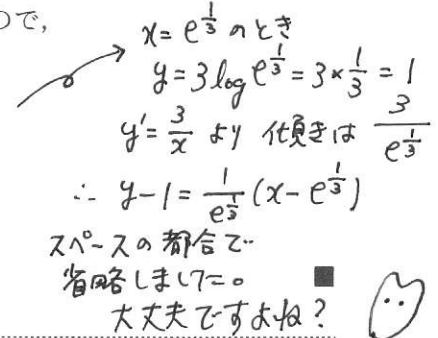 ので,
x = e^{1/3} のとき
y = 3 log e^{1/3} = 3 × 1/3 = 1
y' = 3/x より 傾きは 3/e^{1/3}
∴ y - 1 = 1/e^{1/3} (x - e^{1/3})
スペースの都合で
省略しました。 ■
大丈夫ですよね?